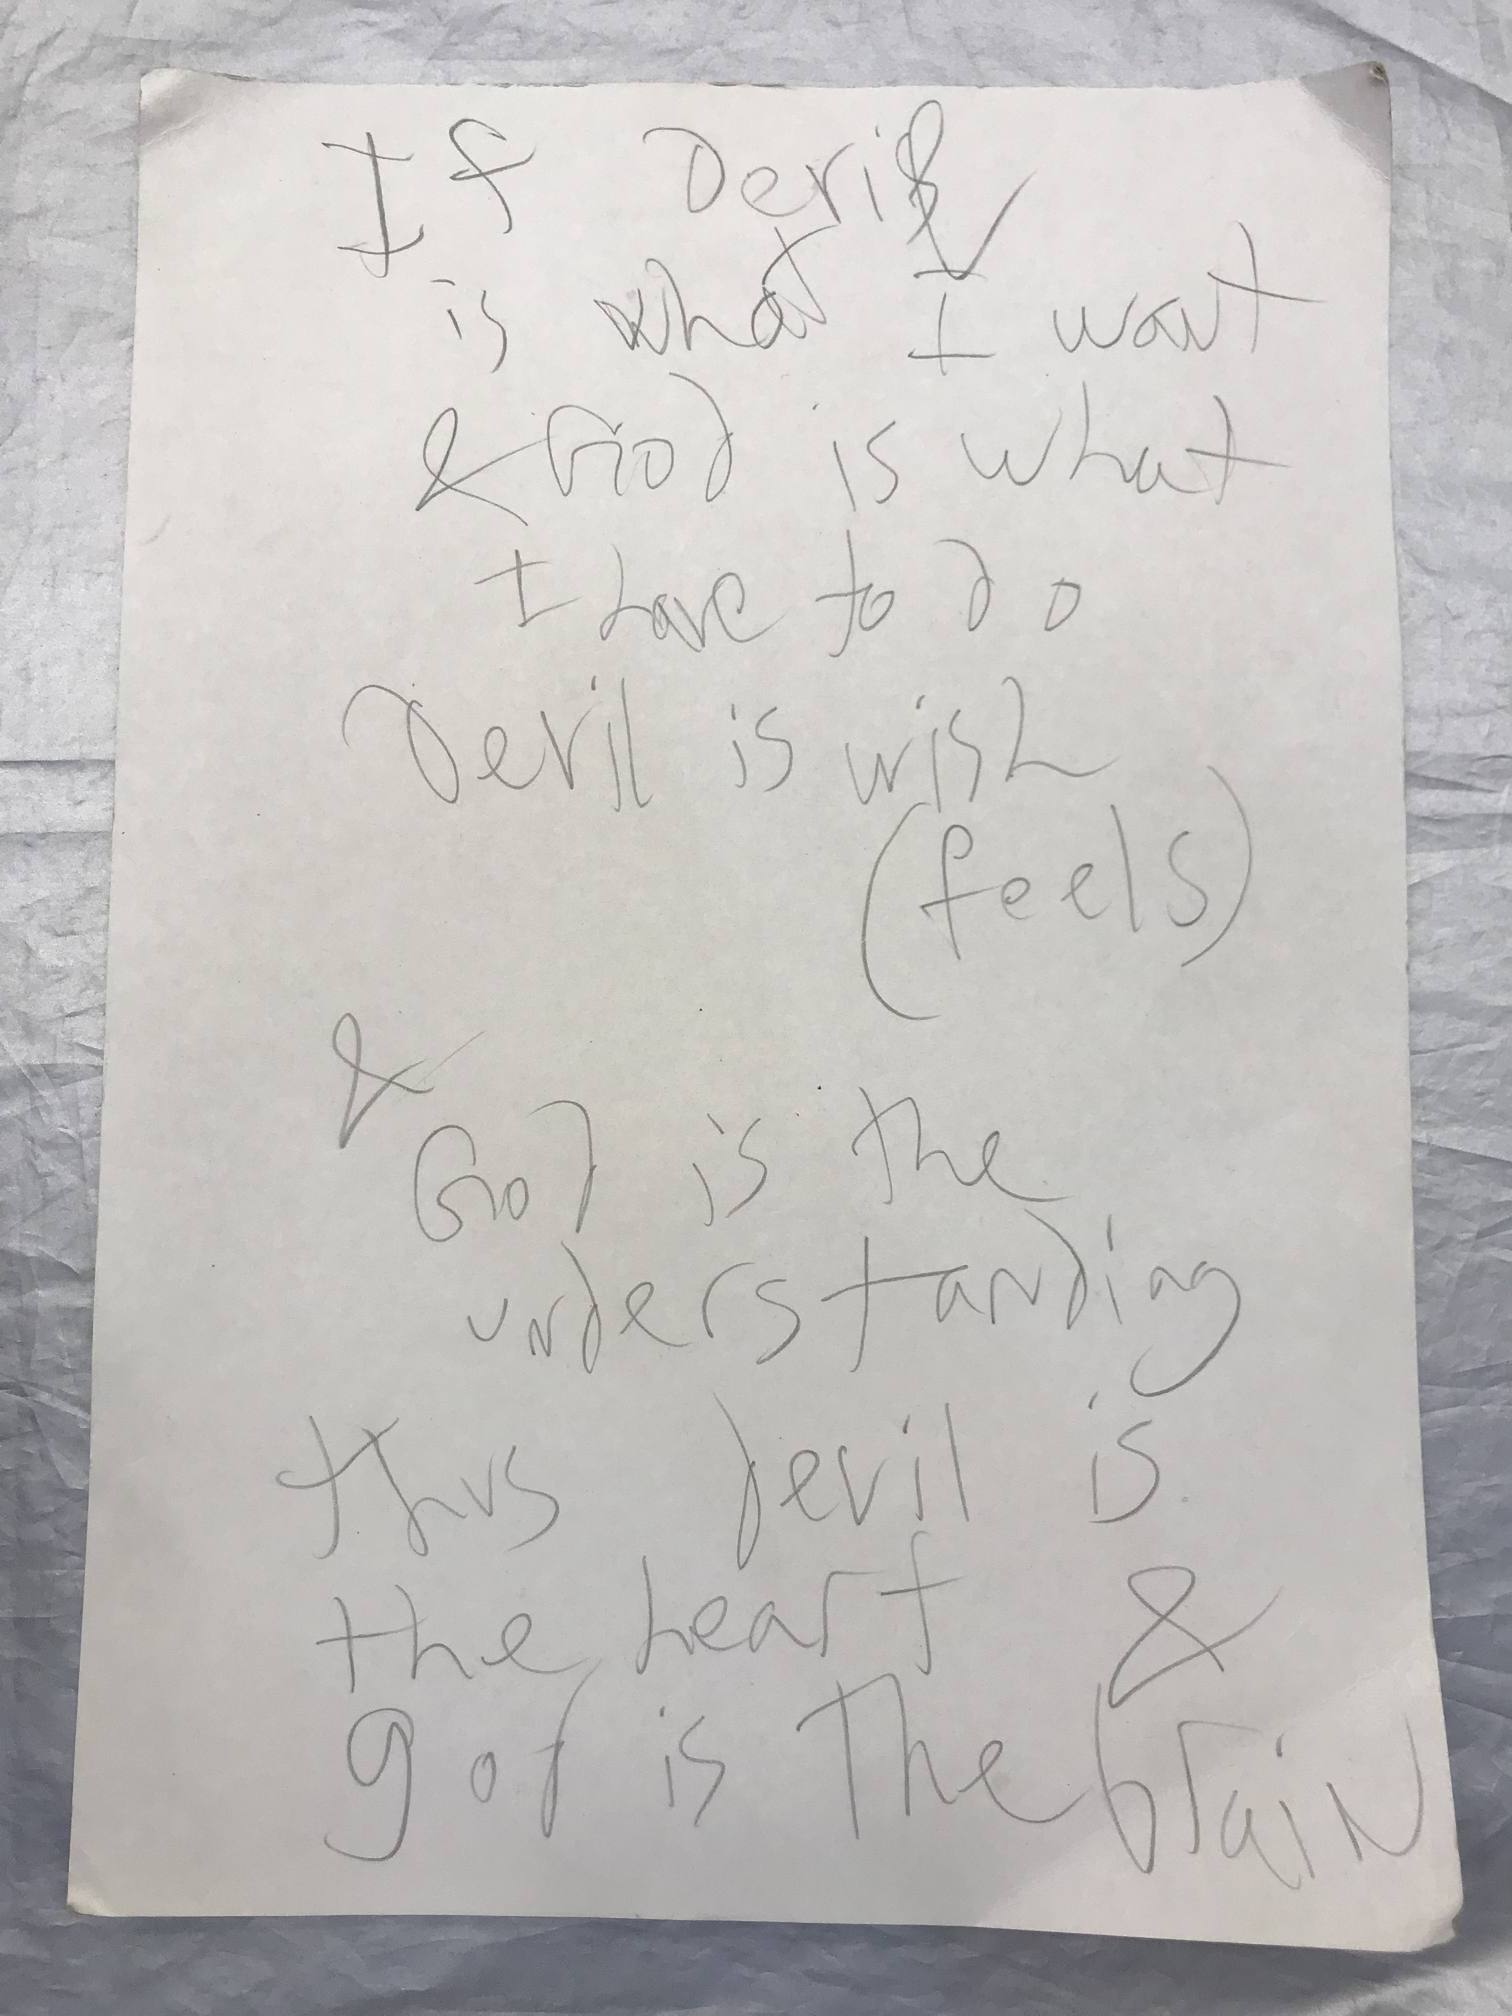 If Devil
is what I want
& God is what
I have to do
Devil is wish
(feels)
&
God is the
understanding
thus devil is
the heart &
god is The brain